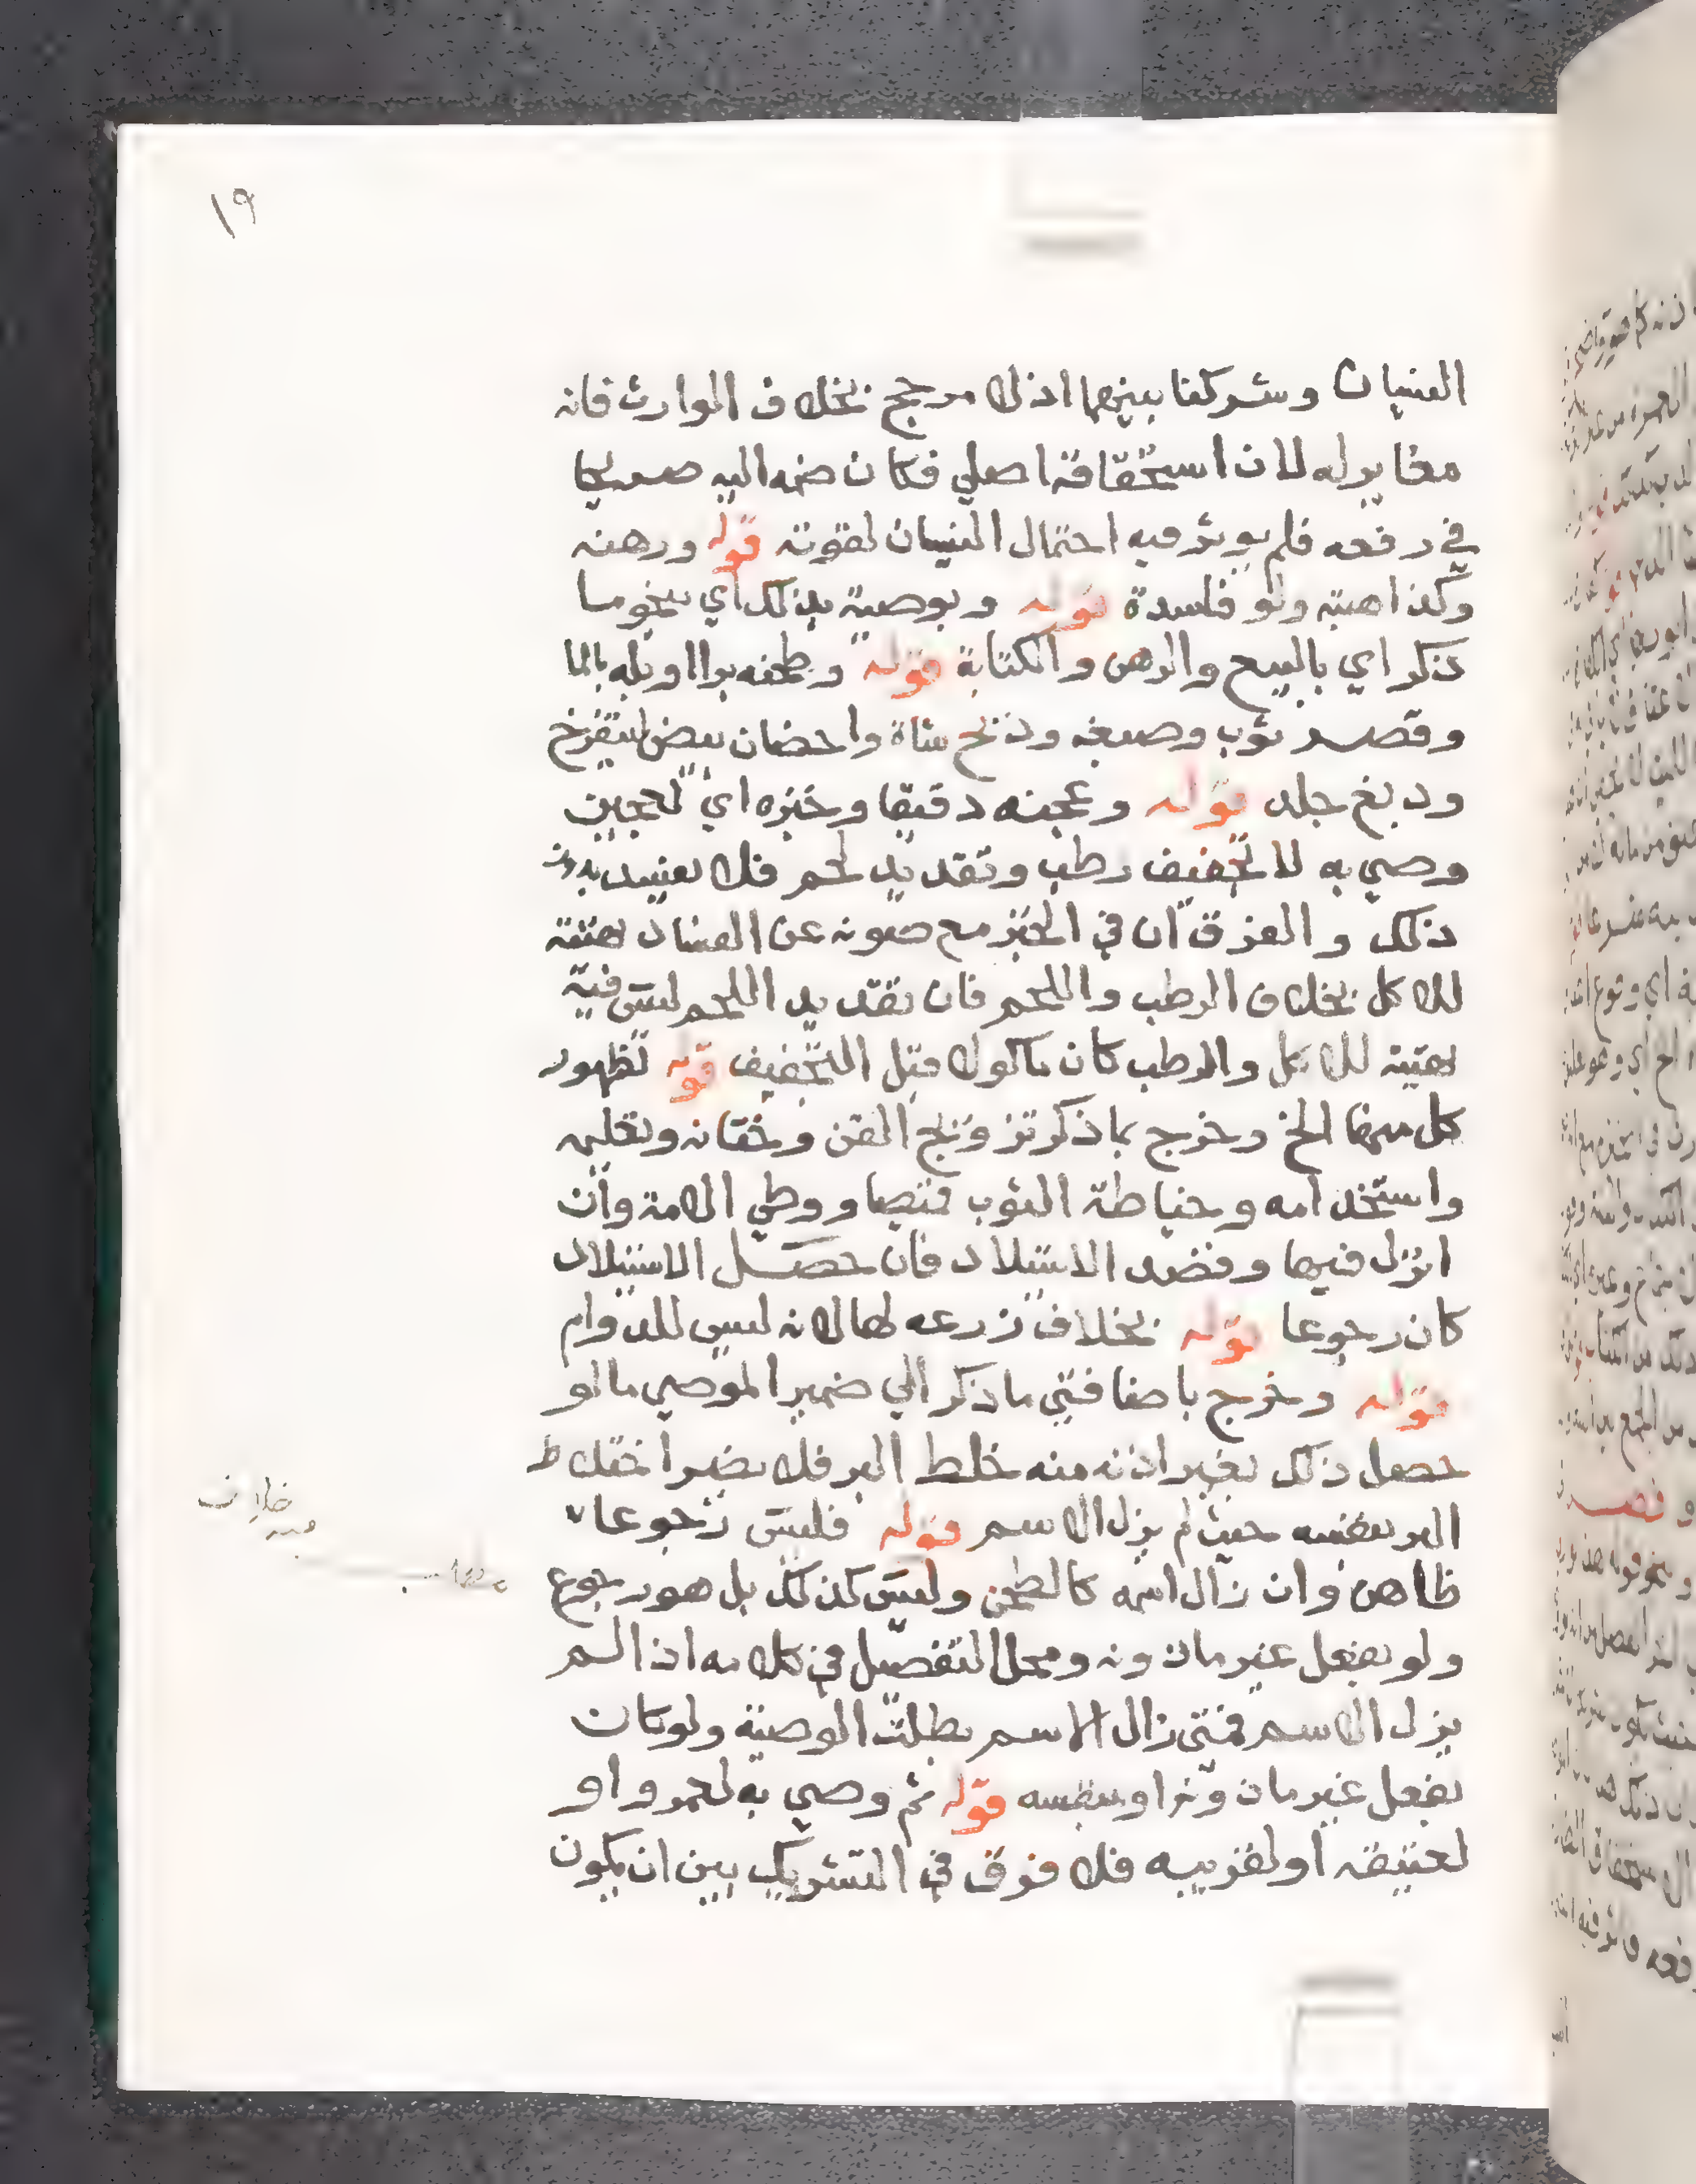 ١٩
النسيان وشركنا بينهما اذ لا مرجح بخلاف الوارث فانه
مغاير له لان استحقاقه اصلي فكان ضمه اليه صريحا
في رفعه فلم يوثر فيه احتمال النسيان لقوته قوله ورهنه
وكذا هبته ولو فاسدة قوله وبوصية بذلك اي بنحو ما
ذكر اي بالبيع والرهن والكتابة قوله وطحنه برا او بله بالما
وقصر ثوب وصبغه وذبح شاة واحضان بيض ليتفرخ
ودبغ جلد قوله وعجنه دقيقا وخبزه اي لعجين
وصي به لا تجفيف رطب وتقديد لحم فلا يفيد بدون
ذلك والفرق ان في الخبز مع صونه عن الفساد تهيئة
للاكل بخلاف الرطب واللحم فان تقديد اللحم ليس فيه
تهيئة للاكل والرطب كان ماكولا قبل التجفيف قوله لظهور
كل منهما الخ وخرج بما ذكر تزويج القن وختانه وتعليمه
واستخدامه وخياطة الثوب قميصا ووطي الامة وان
انزل فيها وقصد الاستيلاد فان حصل الاستيلاد
كان رجوعا قوله بخلاف زرعه لها لانه ليس للدوام
قوله وخرج باضافتي ما ذكر الي ضمير الموصي ما لو
حصل ذلك بغير اذنه منه خلط البر فلا يضر اختلاط
البر بنفسه حيث لم يزل الاسم قوله فليس رجوعا
ظاهره وان زال اسمه كالطحن وليس كذلك بل هو رجوع
ولو بفعل غير ماذونه ومحل التفصيل في كلامه اذا لم
يزل الاسم فمتى زال الاسم بطلت الوصية ولو كان
بفعل غير ماذونه او بنفسه قوله ثم وصي به لعمرو او
لعتيقه او لقريبه فلا فرق في التشريك بين ان يكون
خلاف